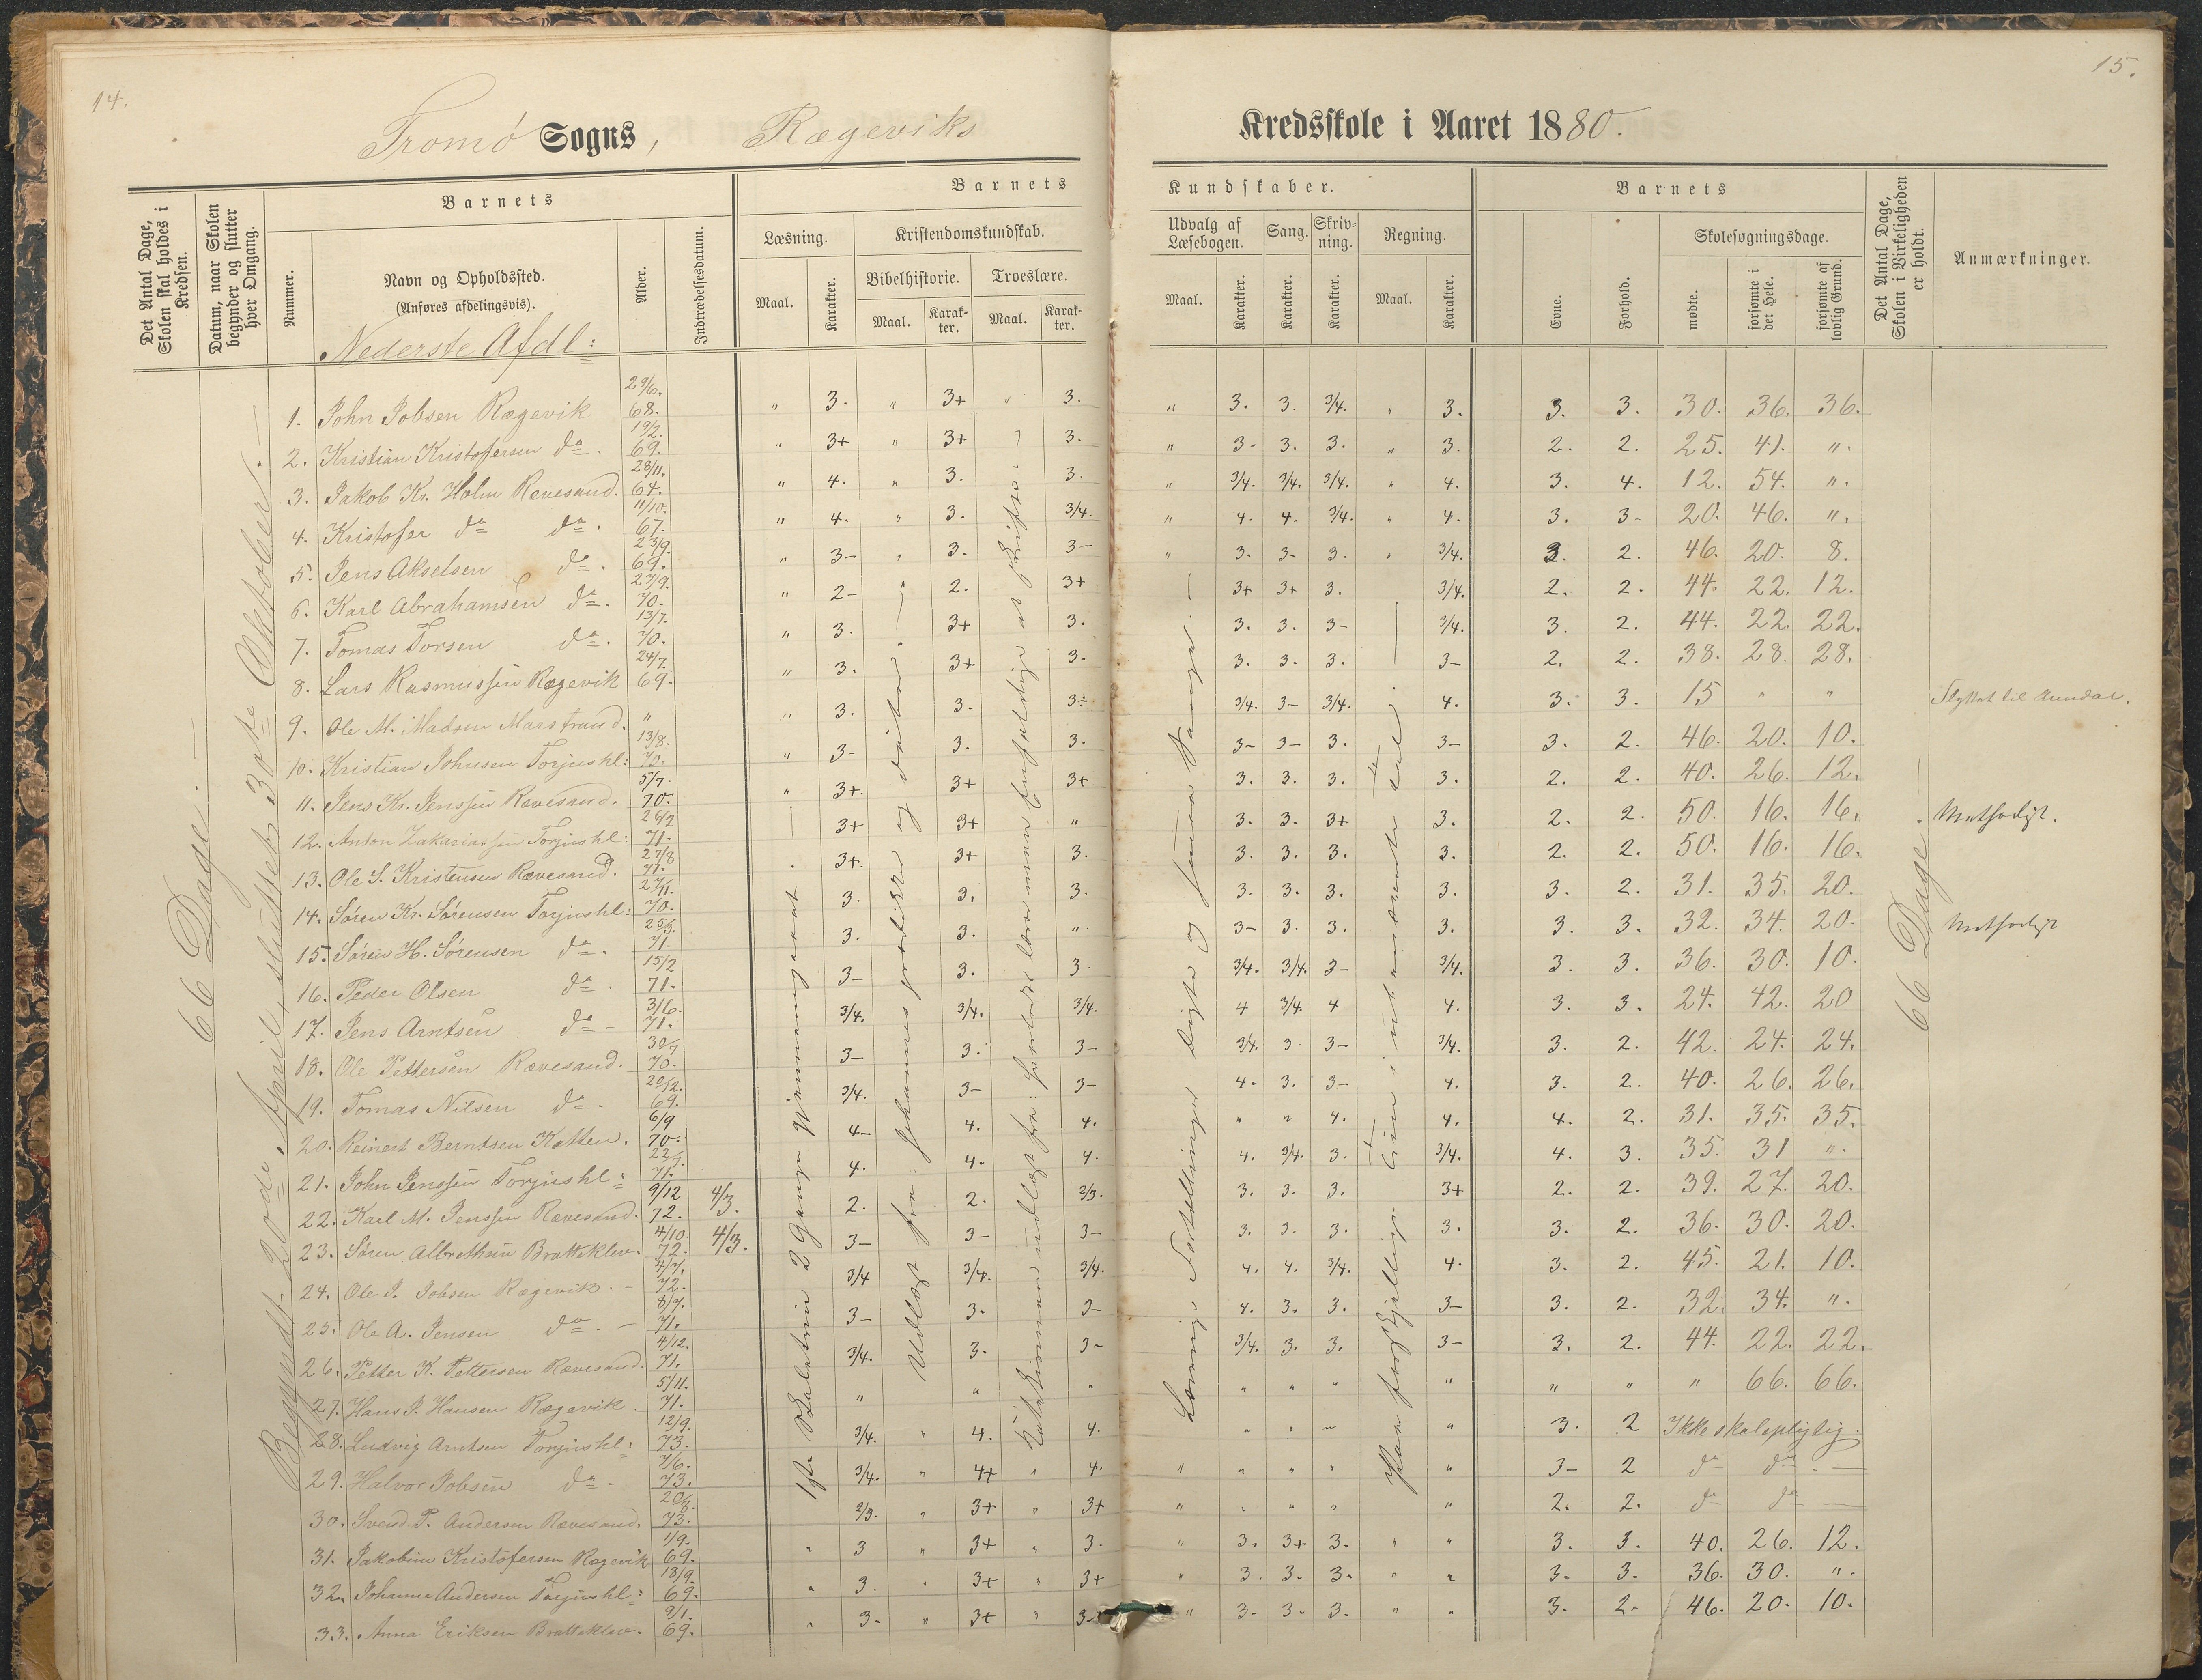 14.
15.
Tromø Sogns, Rægeviks
Kredsskole i Aaret 1880.
Det Antal Dage, Skolen skal holdes i Kredsen.
Datum, naar Skolen begynder og slutter hver Omgang.
Barnets
Nummer.
Navn og Opholdssted.
(Anføres afdelingsvis).
Alder.
Indtrædelsesdatum.
Barnets Kundskaber.
Læsning.
Maal.
Karakter.
Kristendomskundskab.
Bibelhistorie.
Maal.
Karakter.
Troeslære.
Maal.
Karakter.
Udvalg af Læsebogen.
Maal.
Karakter.
Sang.
Karakter.
Skrivning.
Karakter.
Regning.
Maal.
Karakter.
Barnets
Evne.
Forhold.
Skolesøgningsdage.
mødte.
forsømte i det Hele.
forsømte af lovlig Grund.
Det Antal Dage, Skolen i Virkeligheden er holdt.
Anmærkninger.
Nederste Afdl:
66 Dage.
Begyndt 20de April, sluttet 30te Oktober.
66 Dage
1. John Jobsen Rægevik 29/6. 68. " 3. " 3+ " 3. " 3. 3. 3/4. " 3. 3. 3. 30. 36. 36.
2. Kristian Kristofersen do. 19/2. 69. " 3+ " 3+ " 3. " 3- 3. 3. " 3. 2. 2. 25. 41. ".
3. Jakob Kr. Holm Revesand. 28/11. 64. " 4. " 3. 3. " 3/4. 3/4. 3/4. " 4. 3. 4. 12. 54. ".
4. Kristofer do do. 11/10. 67. " 4. " 3. 3/4. " 4. 4. 3/4. " 4. 3. 3- 20. 46. ".
5. Jens Akselsen do. 23/9. 69. " 3- " 3. 3- " 3. 3- 3. " 3/4. 3. 2. 46. 20. 8.
6. Karl Abrahamsen do. 27/9. 70. " 2- " 2. 3+ 3+ 3+ 3. 3/4. 2. 2. 44. 22. 12.
7. Tomas Torsen do. 13/7. 70. " 3. 3+ 3. 3. 3. 3- 3/4. 3. 2. 44. 22. 22.
8. Lars Rasmussen Rægevik 24/7. 69. " 3. 3+ 3. 3. 3. 3. 3- 2. 2. 38. 28. 28.
9. Ole M. Madsen Marstrand. " " 3. 3. 3÷ 3/4. 3- 3/4. 4. 3. 3. 15 " " Flyttet til Arendal.
10. Kristian Johnsen Torjushl: 13/8. 70. " 3- 3. 3. 3- 3- 3. 3- 3. 2. 46. 20. 10.
11. Jens Kr. Jenssen Rævesand. 5/7. 70. " 3+. 3+ 3+ 3. 3. 3. 3. 2. 2. 40. 26. 12.
12. Anton Zakariassen Torjushl: 26/2 71. 3+ 3+ " 3. 3. 3+ 3. 2. 2. 50. 16. 16. Methodist.
13. Ole S. Kristensen Rævesand. 27/8 71. 3+. 3+ 3. 3. 3. 3. 3. 2. 2. 50. 16. 16.
14. Søren Kr. Sørensen Torjushl: 27/11. 70. 3. 3. 3. 3. 3. 3. 3. 3. 2. 31. 35. 20.
15. Søren H. Sørensen do. 25/3. 71. 3. 3. " 3- 3. 3. 3. 3. 3. 32. 34. 20. Methodist
16. Peder Olsen do. 15/2 71. 3- 3. 3. 3/4. 3/4. 3- 3/4. 3. 3. 36. 30. 10.
17. Jens Arntsen do- 3/6. 71. 3/4. 3/4. 3/4. 4 3/4. 4 4. 3. 3. 24. 42. 20
18. Ole Pettersen Rævesand. 30/7 70. 3- 3. 3- 3/4. 3 3- 3/4. 3. 2. 42. 24. 24.
19. Tomas Nilsen do- 20/12. 69. 3/4. 3- 3- 4. 3. 3- 4. 3. 2. 40. 26. 26.
20. Reinert Berntsen Katten. 6/9 70. 4- 4. 4. " " 4. 4. 4. 2. 31. 35. 35.
21. John Jenssen Torjushl: 22/7. 71. 4. 4. 4. 4. 3/4. 3. 3/4. 4. 3. 35. 31 ".
22. Karl M. Jenssen Rævesand. 9/12 72. 4/3. 2. 2. 2/3. 3. 3. 3. 3+ 2. 2. 39. 27. 20.
23. Søren Albrethsen Bratteklev. 4/10. 72. 4/3. 3- 3- 3- 3. 3. 3. 3. 3. 2. 36. 30. 20.
24. Ole J. Jobsen Rægevik. - 4/7. 72. 3/4 3/4. 3/4. 4. 4. 3/4. 4. 3. 2. 45. 21. 10.
25. Ole A. Jensen do. - 8/7. 71. 3- 3. 3- 4. 3. 3. 3- 3. 2. 32. 34. ".
26. Petter K. Pettersen Rævesand. 4/12. 71. 3/4. 3. 3- 3/4. 3. 3. 3- 3. 2. 44. 22. 22.
27. Hans J. Hansen Rægevik. 5/11. 71. " " " " " " " " " " 66. 66.
28. Ludvig Arntsen Torjushl: 12/9. 73. 3/4. " 4. 4. " " " " 3. 2 Ikke skolepligtig.
29. Halvor Jobsen do- 7/6. 73. 3/4. " 4+ " 4. " " " " " 3- 2 do do. -
30. Svend T. Andersen Rævesand. 20/8. 73. 2/3. " 3+ " 3+ " " " " " 2. 2. do do -
31. Jakobine Kristofersen Rægevik 1/9. 69. " 3 " 3+ " 3. " 3. 3+ 3. " " 3. 3. 40. 26. 12.
32. Johanne Andersen Torjushl: 18/9. 69. " 3. " 3+ " 3+ " 3. 3. 3. " " 3. 3. 36. 30. ".
33. Anna Eriksen Bratteklev. 9/1. 69. " 3. " 3+ " 3- " 3- 3- 3. " " 3. 2- 46. 20. 10.